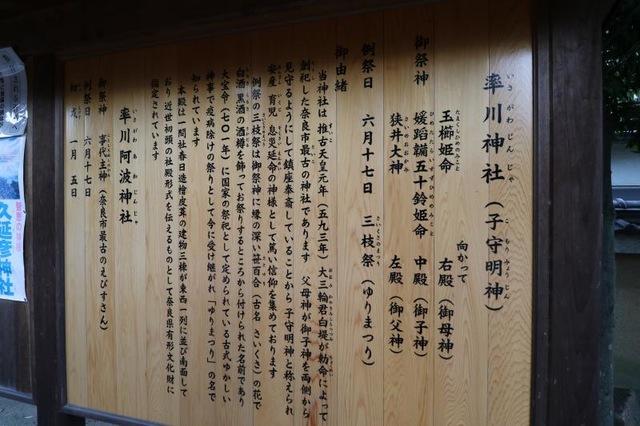 率川神社(子守明神)
いさがわじんじゃ
こもりみょうじん
御祭神
玉櫛姫命
たまくしひめのみこと
向かって
右殿(御母神)
媛蹈韛五十鈴姫命
ひめたたらいすずひめのみこと
中殿(御子神)
狭井大神
さいのおおかみ
左殿(御父神)
例祭日 六月十七日 三枝祭(ゆりまつり)
さいくさのまつり
御由緒
当神社は推古天皇元年(五九三年)大三輪君白堤が勅命によって
創祀した奈良市最古の神社であります 父母神が御子神を両側から
見守るようにして鎮座奉斎していることから子守明神と称えられ
安産 育児 息災延命の神様として篤い信仰を集めております
例祭の三枝祭は御祭神に縁の深い笹百合(古名 さいくさ)の花で
白酒黒酒の酒樽を飾ってお祭りするところから付けられた名前であり
大宝令(七〇一年)に国家の祭祀として定められている古式ゆかしい
神事で疫病除けの祭りとして今に受け継がれ「ゆりまつり」の名で
知られています
本殿は一間社春日造檜皮葺の建物三棟が東西一列に並び南面して
おり 近世初頭の社殿形式を伝えるものとして奈良県有形文化財に
指定されています
率川阿波神社
いさがわあわじんじゃ
御祭神 事代主神(奈良市最古のえびすさん)
例祭日 六月十七日
初戎 一月五日
久延彦神社